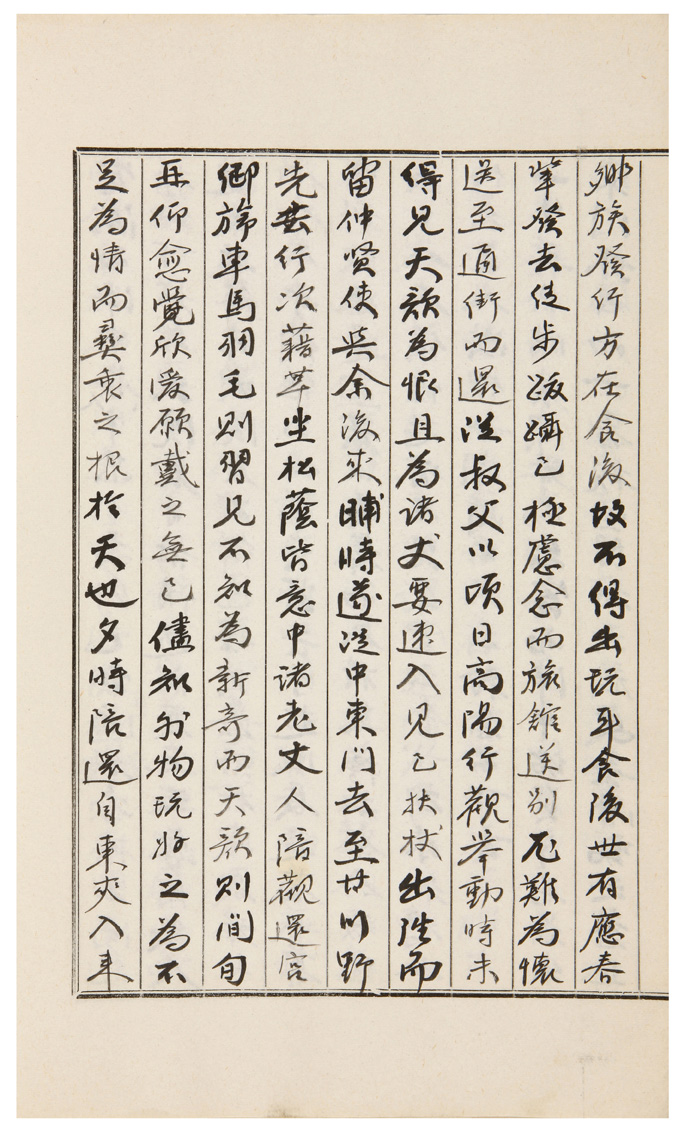 鄉族發行方在食後故不得出玩耳食後世有應春
輩發去徒步跋躡已極慮念而旅館送別尤難為懷
送至通街而還從叔父以頃日高陽行觀擧動時未
得見天顔為恨且為諸丈要速入見已扶杖出陞而
留仲賢使與余後來晡時遂從中東門去至廿川野
先去行次藉草坐松蔭皆意中諸老丈人陪觀還宮
御旂車馬羽毛則習見不知為新奇而天顔則間旬
再仰愈覺欣愛願戴之無已儘知外物玩好之為不
足為情而彛衷之根於天也夕時陪還自東夾入來